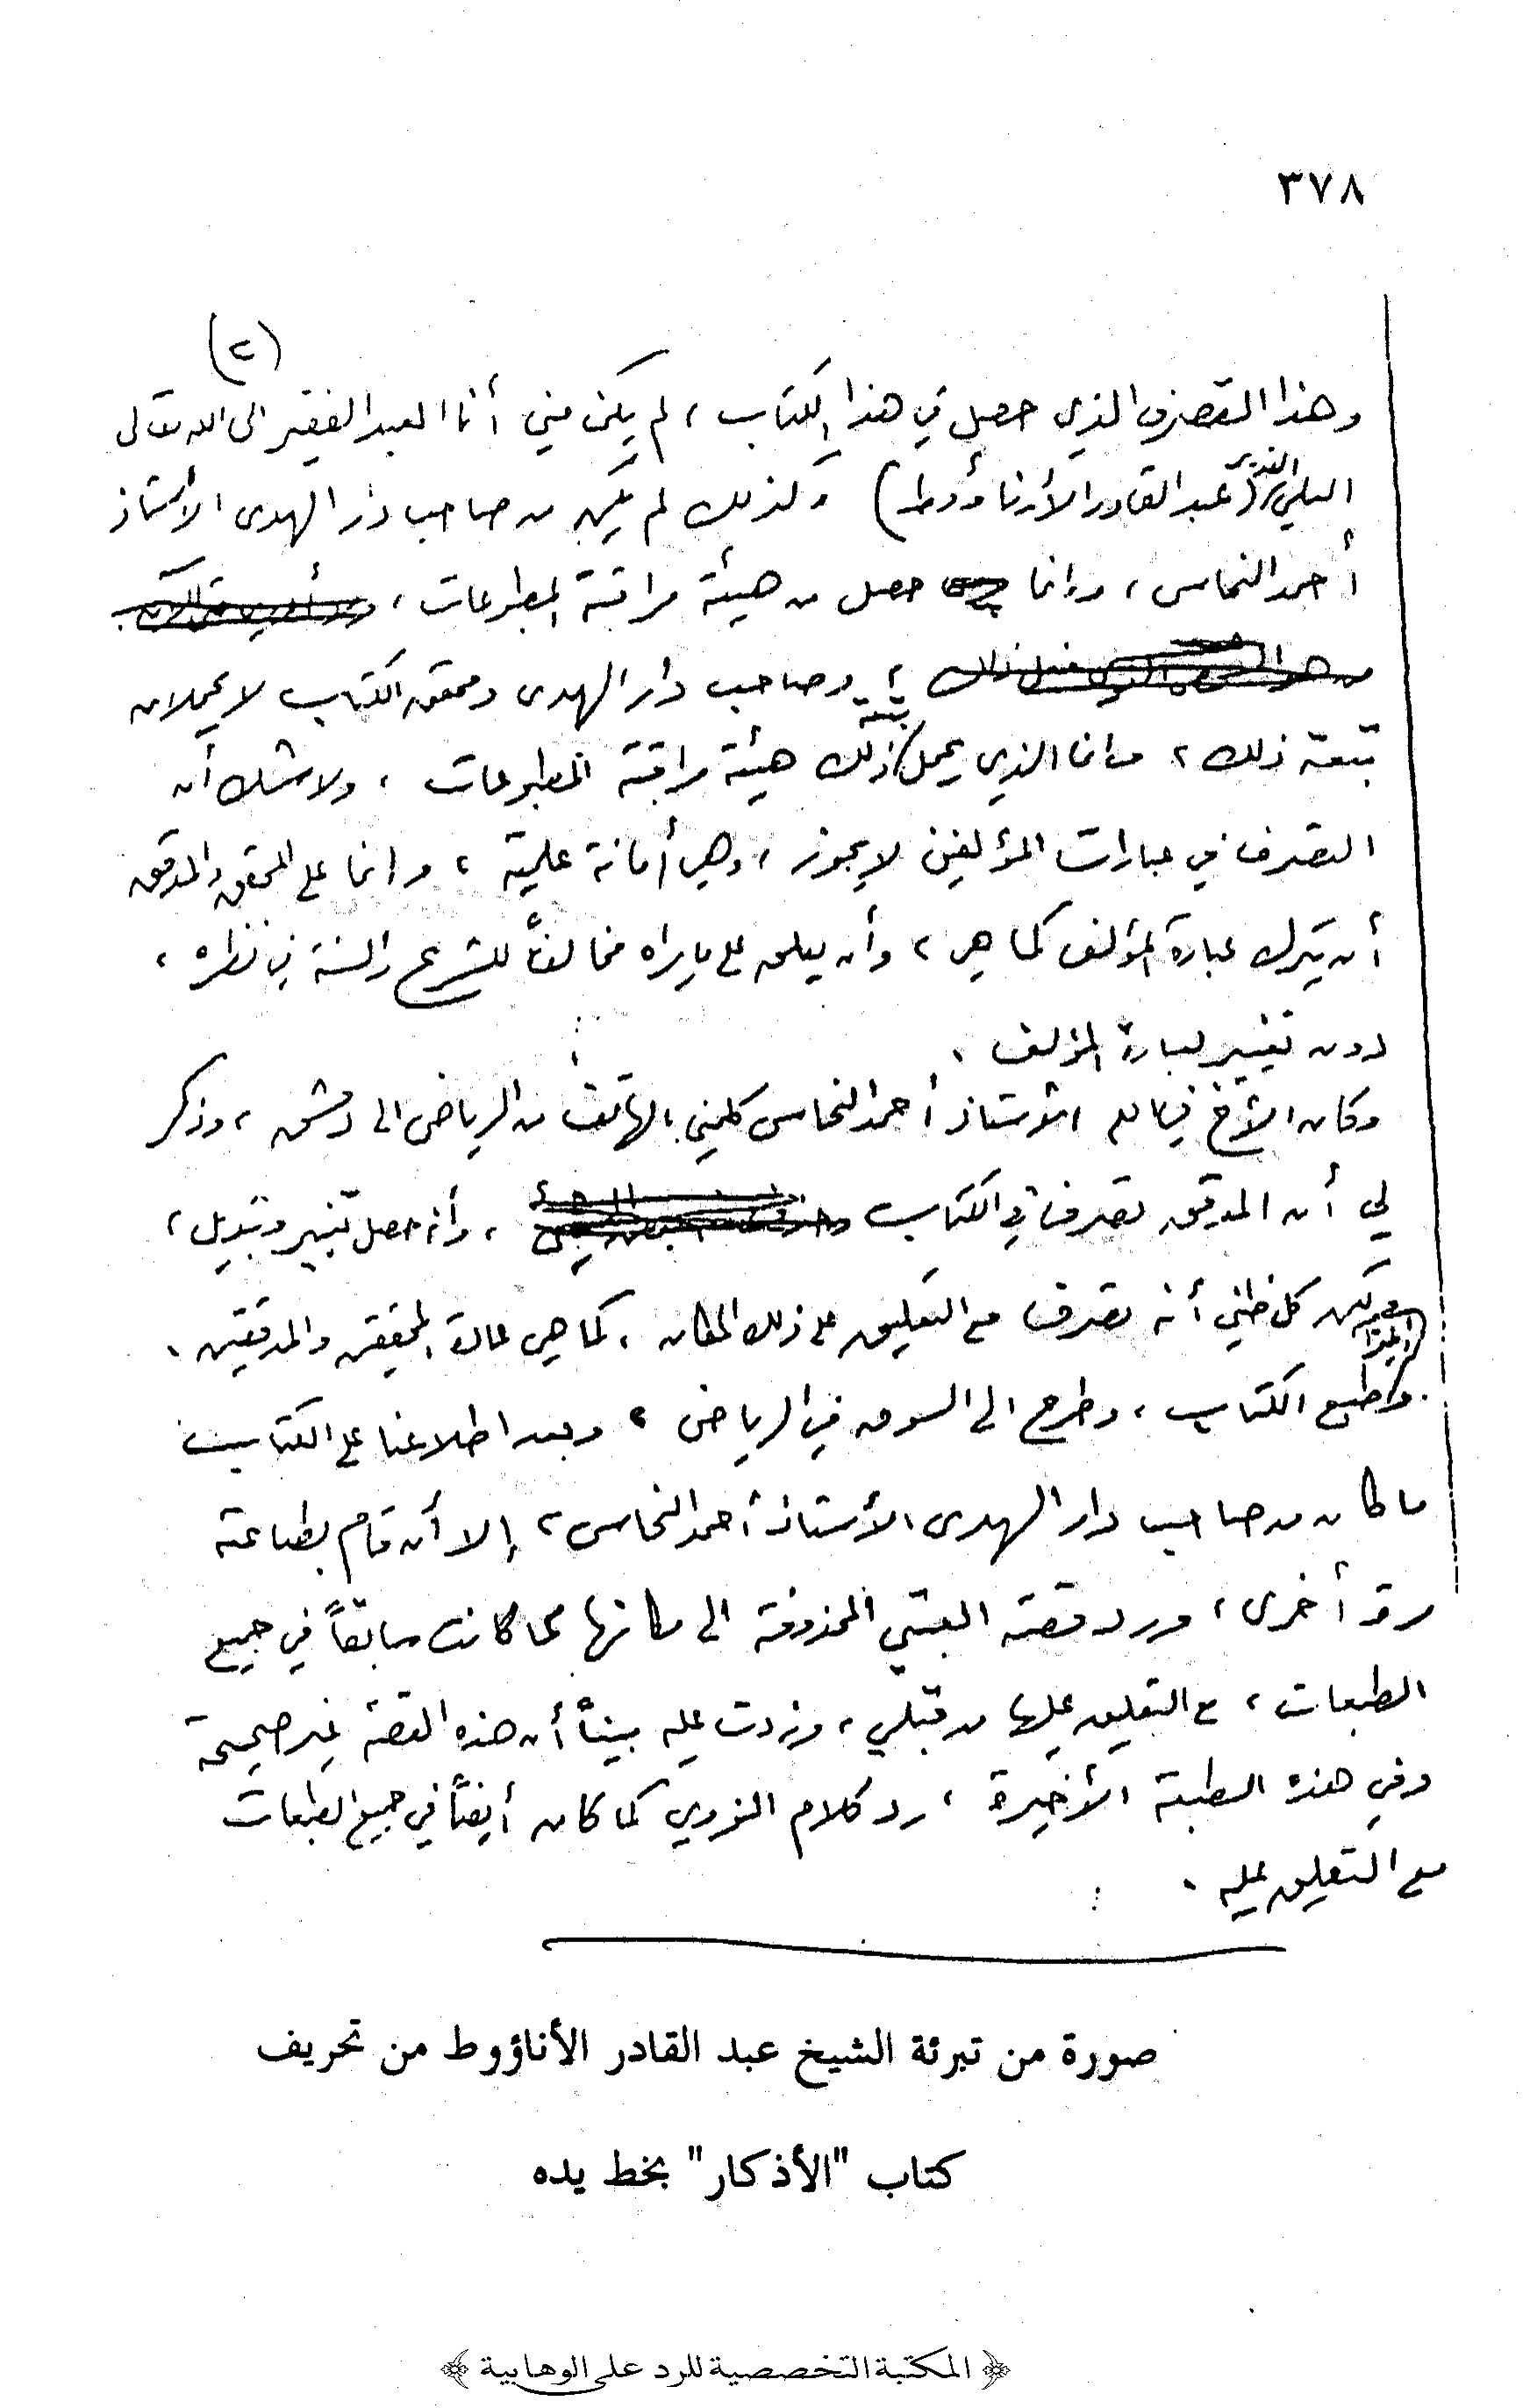 ٣٧٨
(٢)
وهذا التصرف الذي حصل في هذا الكتاب ، لم يكن مني أنا العبد الفقير الى الله تعالى
العلي القدير (عبد القادر الأرناؤوط) وكذلك لم يكن من صاحب دار الهدى الأستاذ
أحمد النحاس ، وإنما حصل من هيئة مراقبة المطبوعات ،
وصاحب دار الهدى ومحقق الكتاب لا يحملان
تبعة ذلك ، وانما الذي يحمل تبعة ذلك هيئة مراقبة المطبوعات ، ولا شك أن
التصرف في عبارات المؤلفين لا يجوز ، وهي أمانة علمية ، وانما على المحقق والمدقق
أن يترك عبارة المؤلف كما هي ، وأن يعلق على ما يراه مخالفاً للشرع والسنة في نظره ،
دون تغيير لعبارة المؤلف .
وكان الأخ الأستاذ أحمد النحاس كلمني بالهاتف من الرياض الى دمشق ، وذكر
لي أن المدقق تصرف في الكتاب ، وأنه حصل تغيير وتبديل ،
ولكن كل ظني أنه تصرف مع التعليق على ذلك المكان ، كما هي عادة المحققين والمدققين .
وطبع الكتاب ، وطرح الى السوق في الرياض ، وبعد اطلاعنا على الكتاب
ما كان من صاحب دار الهدى الأستاذ أحمد النحاس ، إلا أن قام بطباعته
مرة أخرى ، ورد قصة العتبي المحذوفة الى مكانها كما كانت سابقاً في جميع
الطبعات ، مع التعليق عليها من قبلي ، وزدت عليه بينا أن هذه القصة غير صحيحة
وفي هذه الطبعة الأخيرة ، رد كلام النووي كما كان أيضاً في جميع الطبعات
مع التعليق عليه .
صورة من تبرئة الشيخ عبد القادر الأناؤوط من تحريف
كتاب "الأذكار" بخط يده
﴿ المكتبة التخصصية للرد على الوهابية ﴾